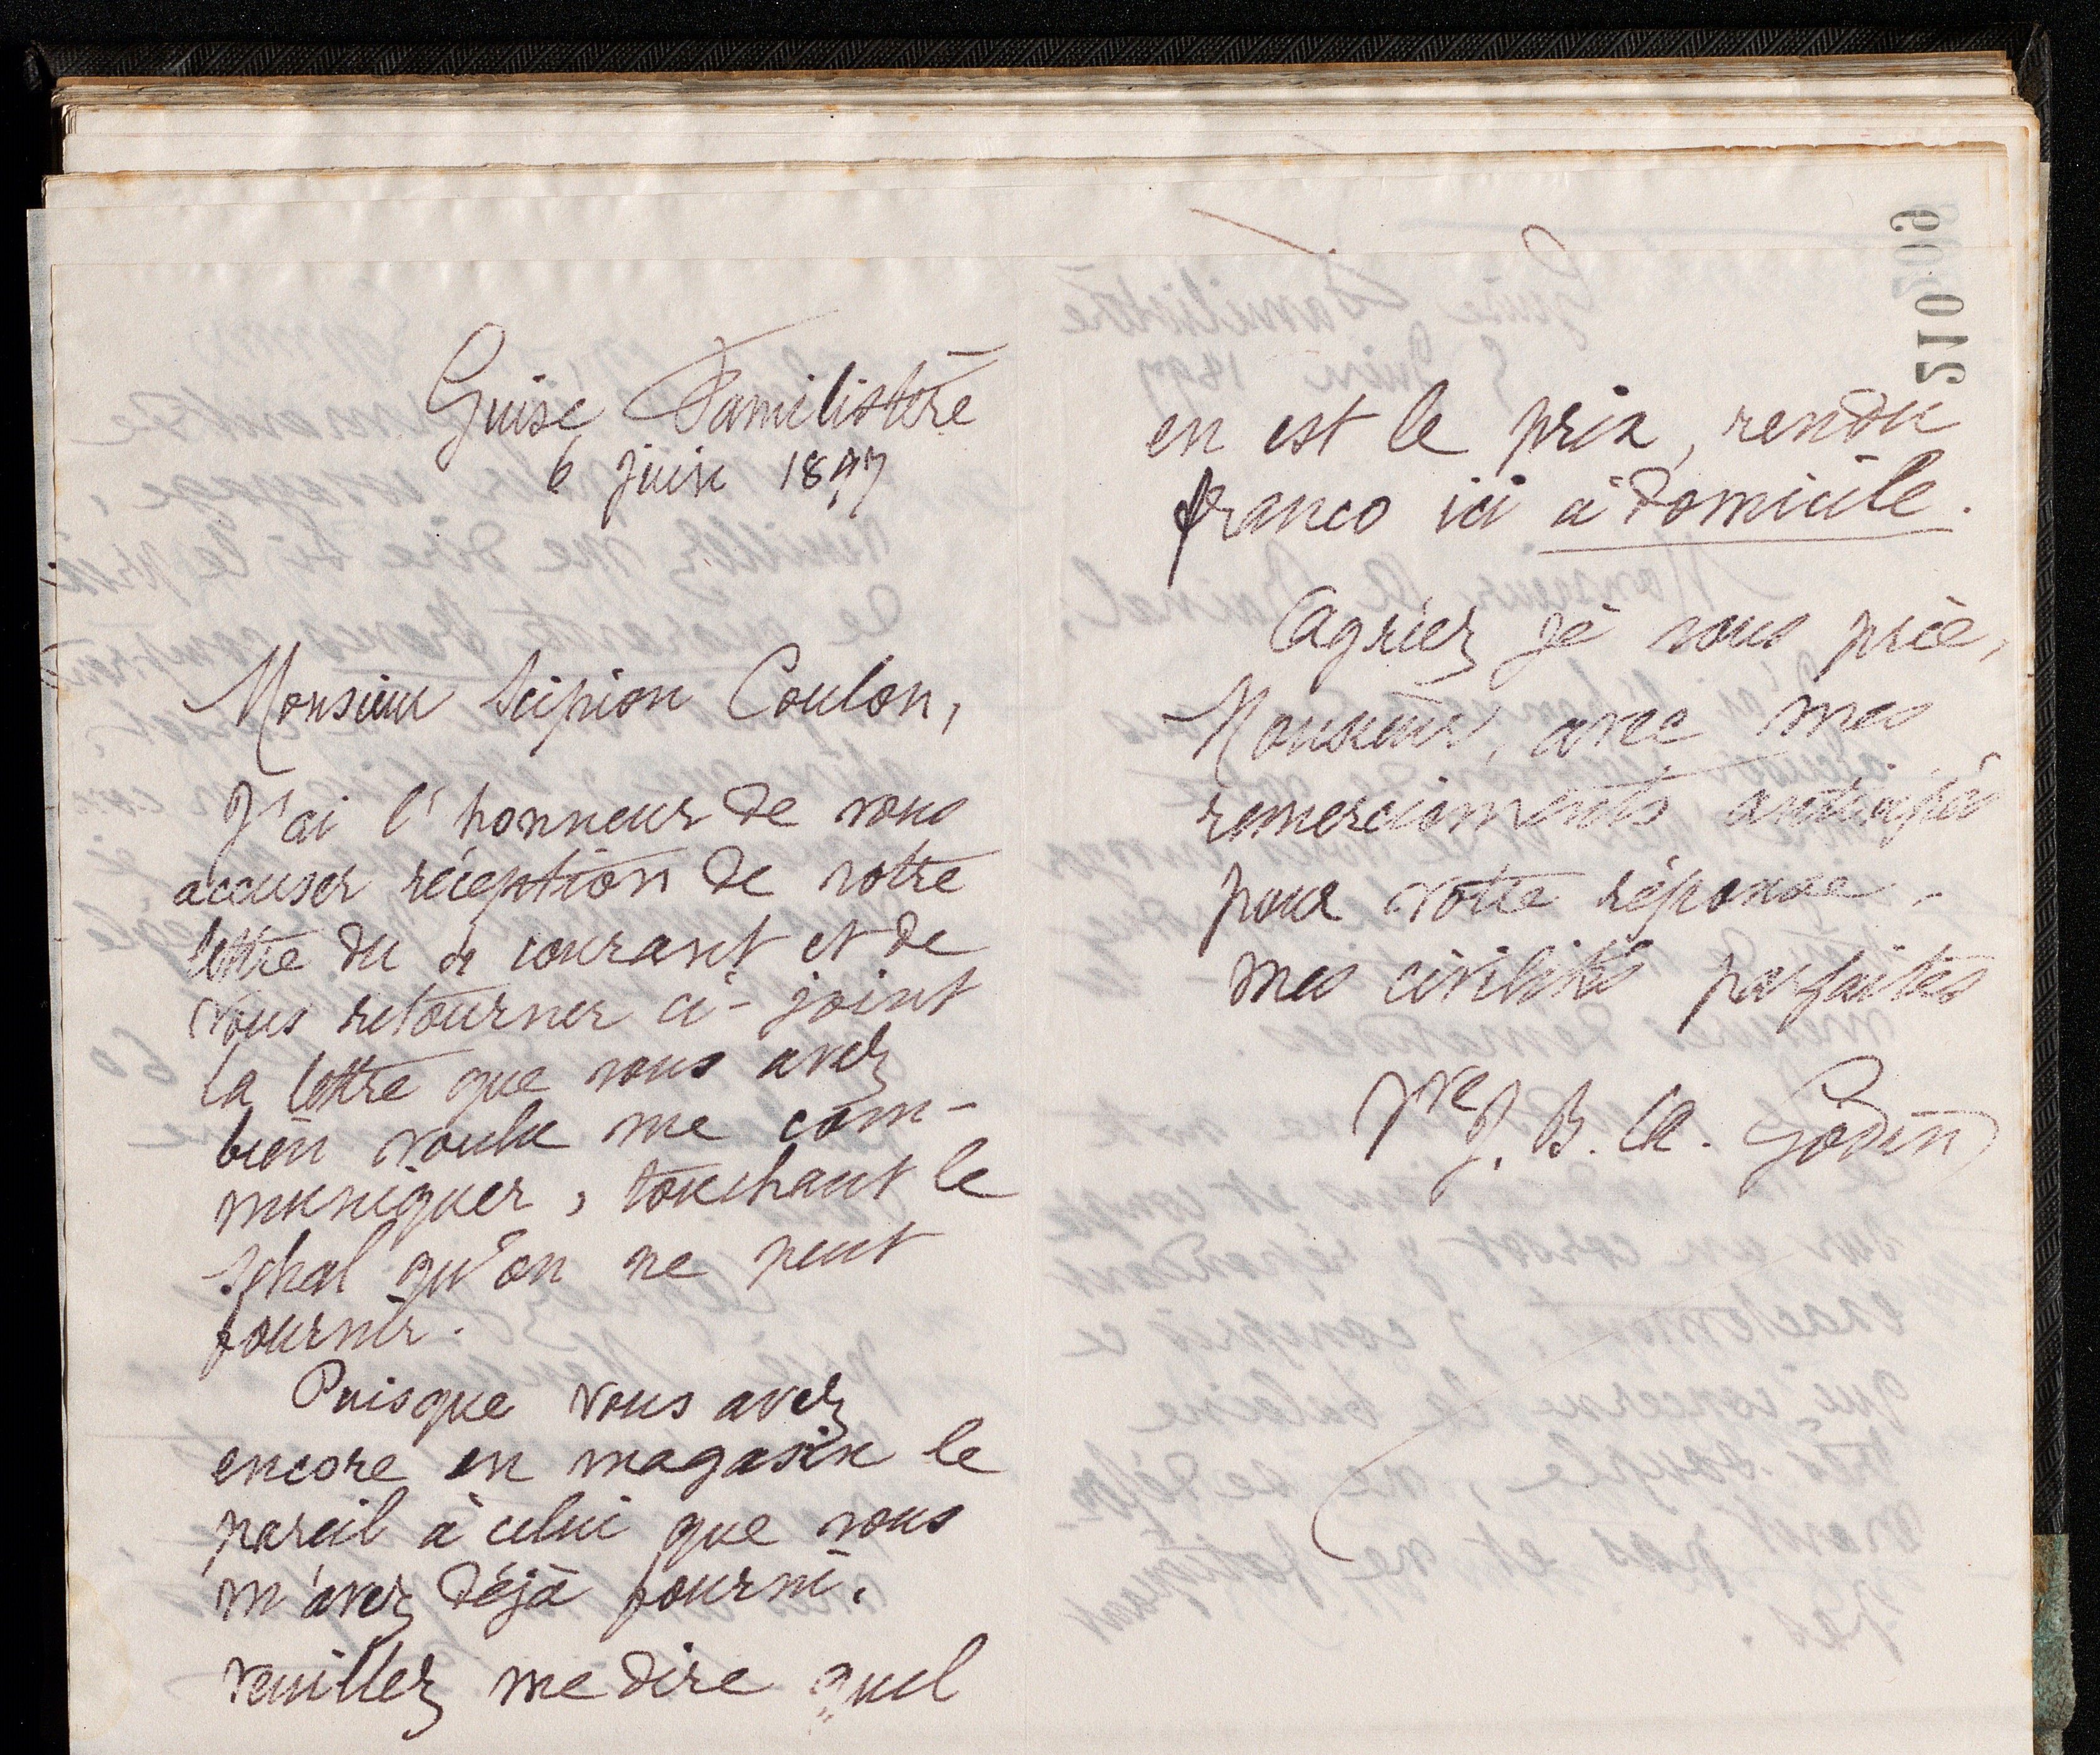 Guise Familistère
6 juin 1897
Monsieur Scipion Coulon,
J'ai l'honneur de vous
accuser réception de votre
lettre du 4 courant et de
vous retourner ci-joint
la lettre que vous avez
bien voulu me com-
muniquer, touchant le
schal qu'on ne peut
fournir.
Puisque vous avez
encore en magasin le
pareil à celui que vous
m'avez déjà fourni,
veuillez me dire quel
210
en est le prix, rendu
franco ici à domicile.
Agréez je vous prie,
Monsieur, avec mes
remerciements anticipés
pour votre réponse -
mes civilités parfaites
Vve J. B. A. Godin